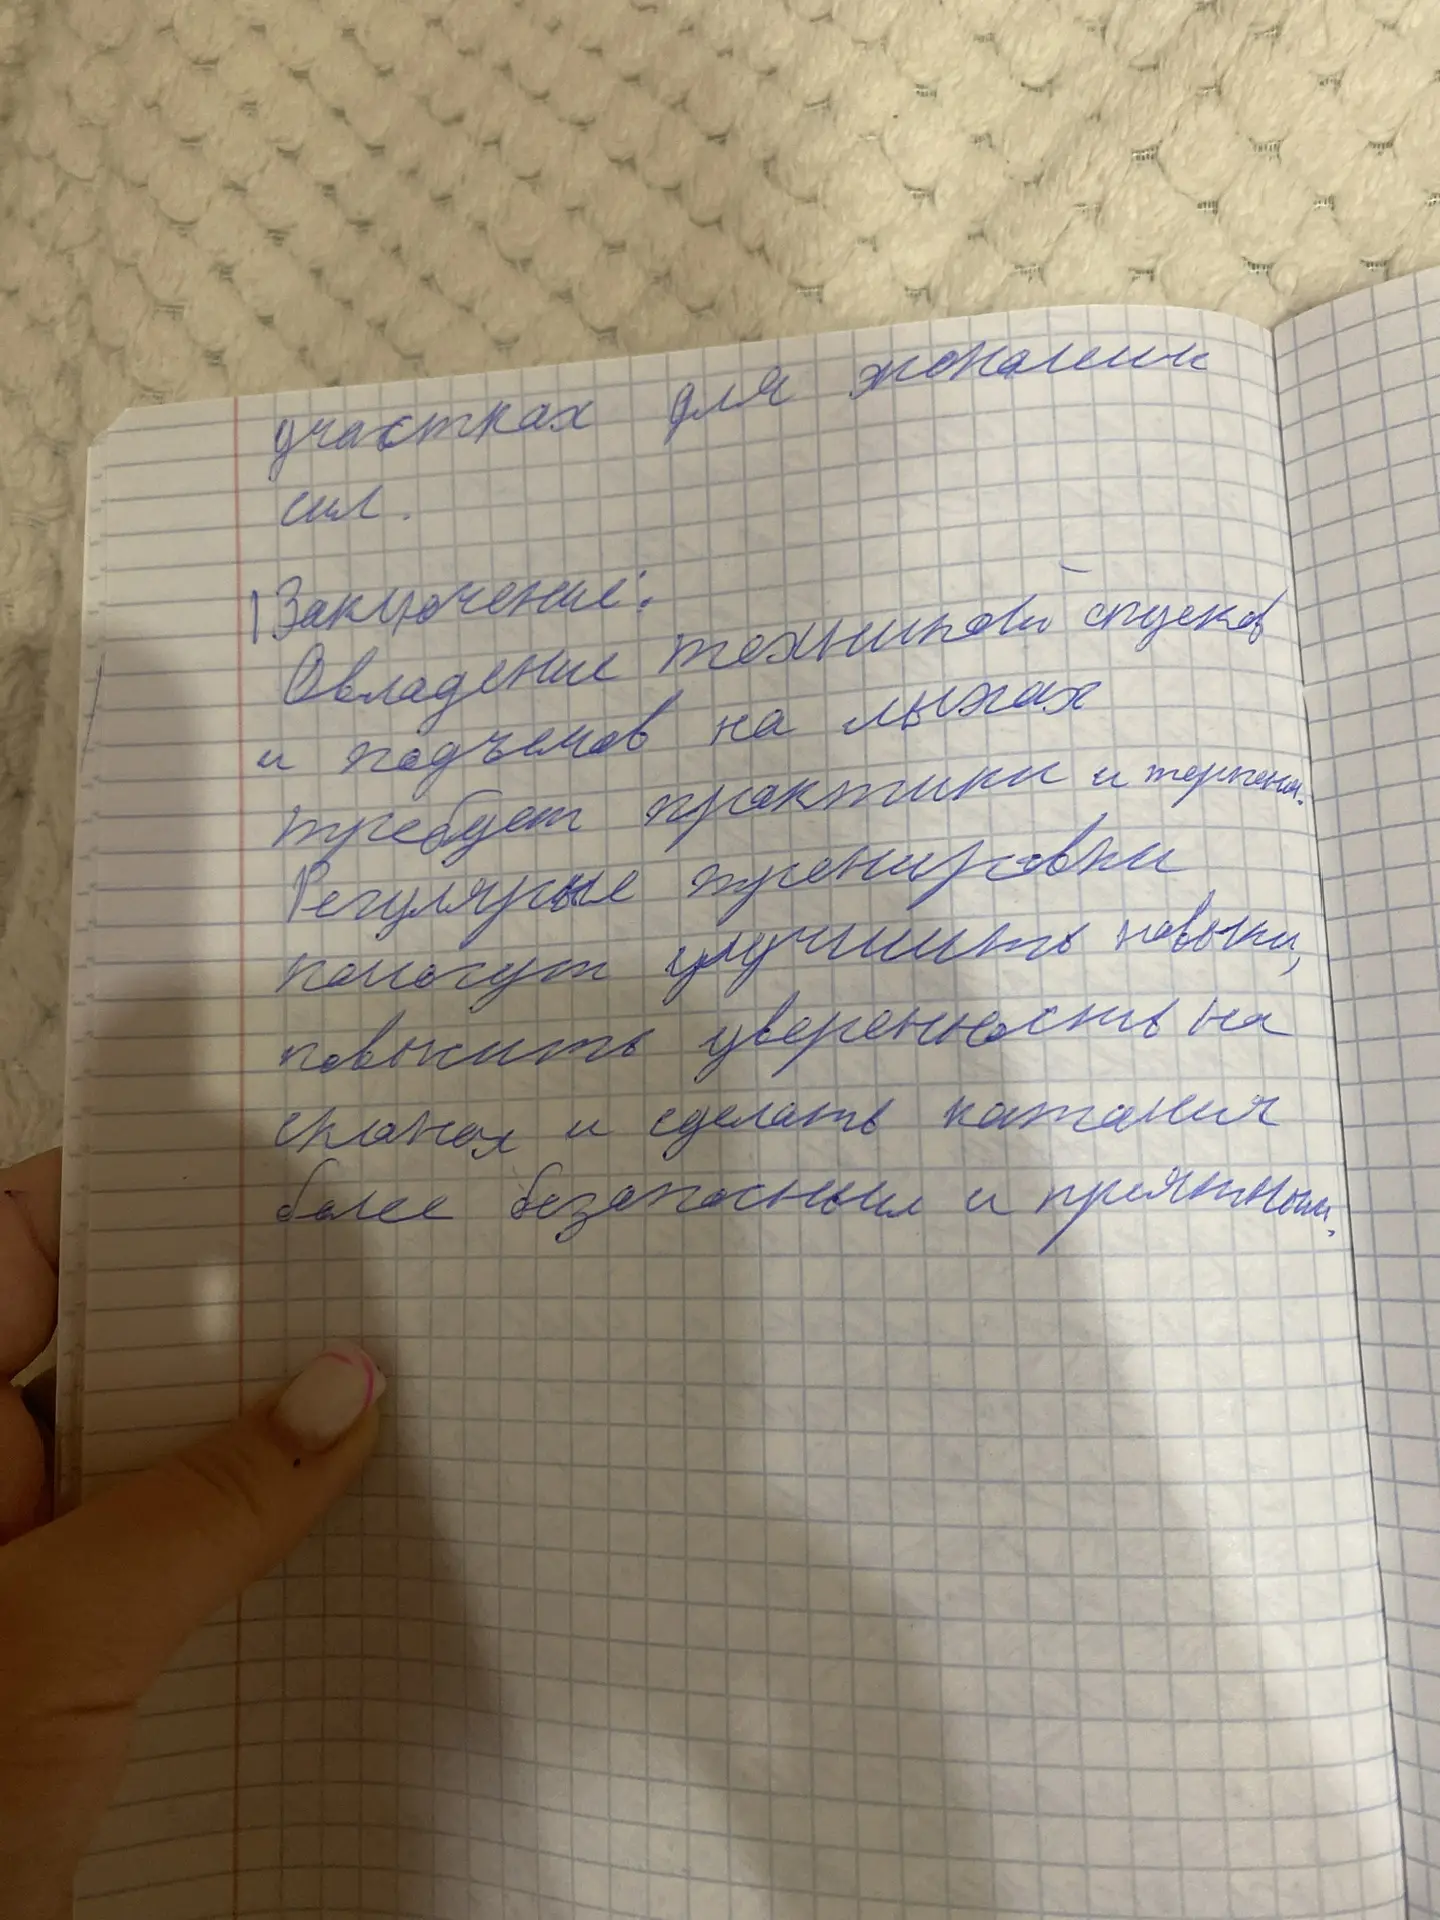 участках для экономии
сил.
Заключение:
Овладение техникой спусков
и подъемов на лыжах
требует практики и терпения.
Регулярные тренировки
помогут улучшить навыки,
повысить уверенность на
склонах и сделать катания
более безопасным и приятным.